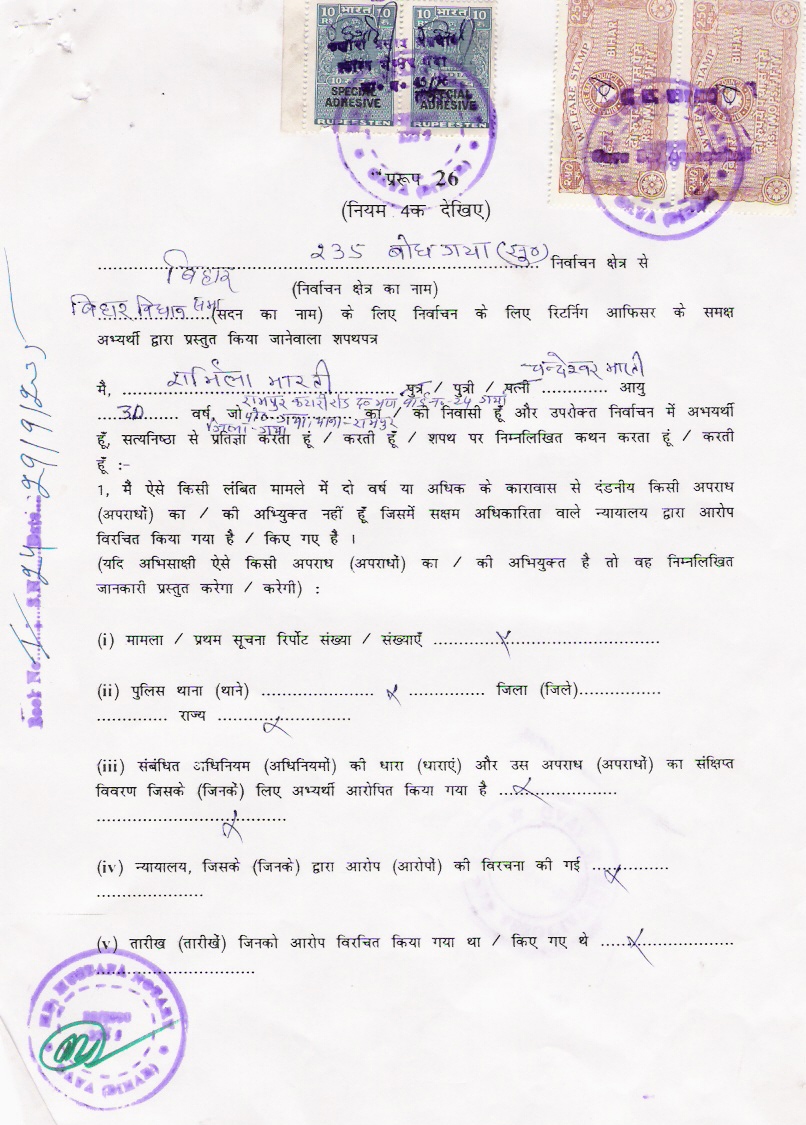 10 भारत 10
SPECIAL ADHESIVE
RUPEESTEN
10 भारत 10
SPECIAL ADHESIVE
RUPEESTEN
WELFARE STAMP BIHAR
WELFARE STAMP BIHAR
प्ररूप 26
(नियम 4क देखिए)
235 बोध गया (सु०) निर्वाचन क्षेत्र से
बिहार
(निर्वाचन क्षेत्र का नाम)
बिहार विधान सभा (सदन का नाम) के लिए निर्वाचन के लिए रिटर्निग आफिसर के समक्ष
अभ्यर्थी द्वारा प्रस्तुत किया जानेवाला शपथपत्र
मै, शर्मिला भारती पुत्र / पुत्री / पत्नी चन्देश्वर भारती आयु
30 वर्ष, जो रामपुर रोड वार्ड नं-24 गया का / की निवासी हूँ और उपरोक्त निर्वाचन में अभयर्थी
पो०-गया, थाना-रामपुर
जिला-गया
हूँ, सत्यनिष्ठा से प्रतिज्ञा करता हूं / करती हूँ / शपथ पर निम्नलिखित कथन करता हूं / करती
हूँ :-
1, मै ऐसे किसी लंबित मामले में दो वर्ष या अधिक के कारावास से दंडनीय किसी अपराध
(अपराधों) का / की अभ्युक्त नहीं हूँ जिसमें सक्षम अधिकारिता वाले न्यायालय द्वारा आरोप
विरचित किया गया है / किए गए है ।
(यदि अभिसाक्षी ऐसे किसी अपराध (अपराधों) का / की अभियुक्त है तो वह निम्नलिखित
जानकारी प्रस्तुत करेगा / करेगी) :
(i) मामला / प्रथम सूचना रिर्पोट संख्या / संख्याएँ ........................................
(ii) पुलिस थाना (थाने) .................... .............. जिला (जिले)...............
............. राज्य ........................
(iii) संबंधित अधिनियम (अधिनियमों) की धारा (धाराएं) और उस अपराध (अपराधों) का संक्षिप्त
विवरण जिसके (जिनके) लिए अभ्यर्थी आरोपित किया गया है ......................
..................................
(iv) न्यायालय, जिसके (जिनके) द्वारा आरोप (आरोपों) की विरचना की गई ..............
....................
(v) तारीख (तारीखें) जिनको आरोप विरचित किया गया था / किए गए थे ........................
.............................
Book No. 1 S.N. 24 Date
MD. MUSTAFA NOTARY
GAYA (BIHAR)